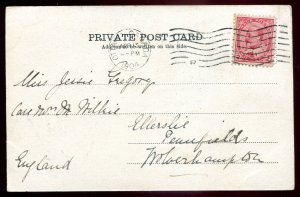 PRIVATE POST CARD
Address to be written on this side.
PM
Miss Jessie Gregory
Care Mrs M Wilkie
Ellerslie
Pennfields
Wolverhampton
England